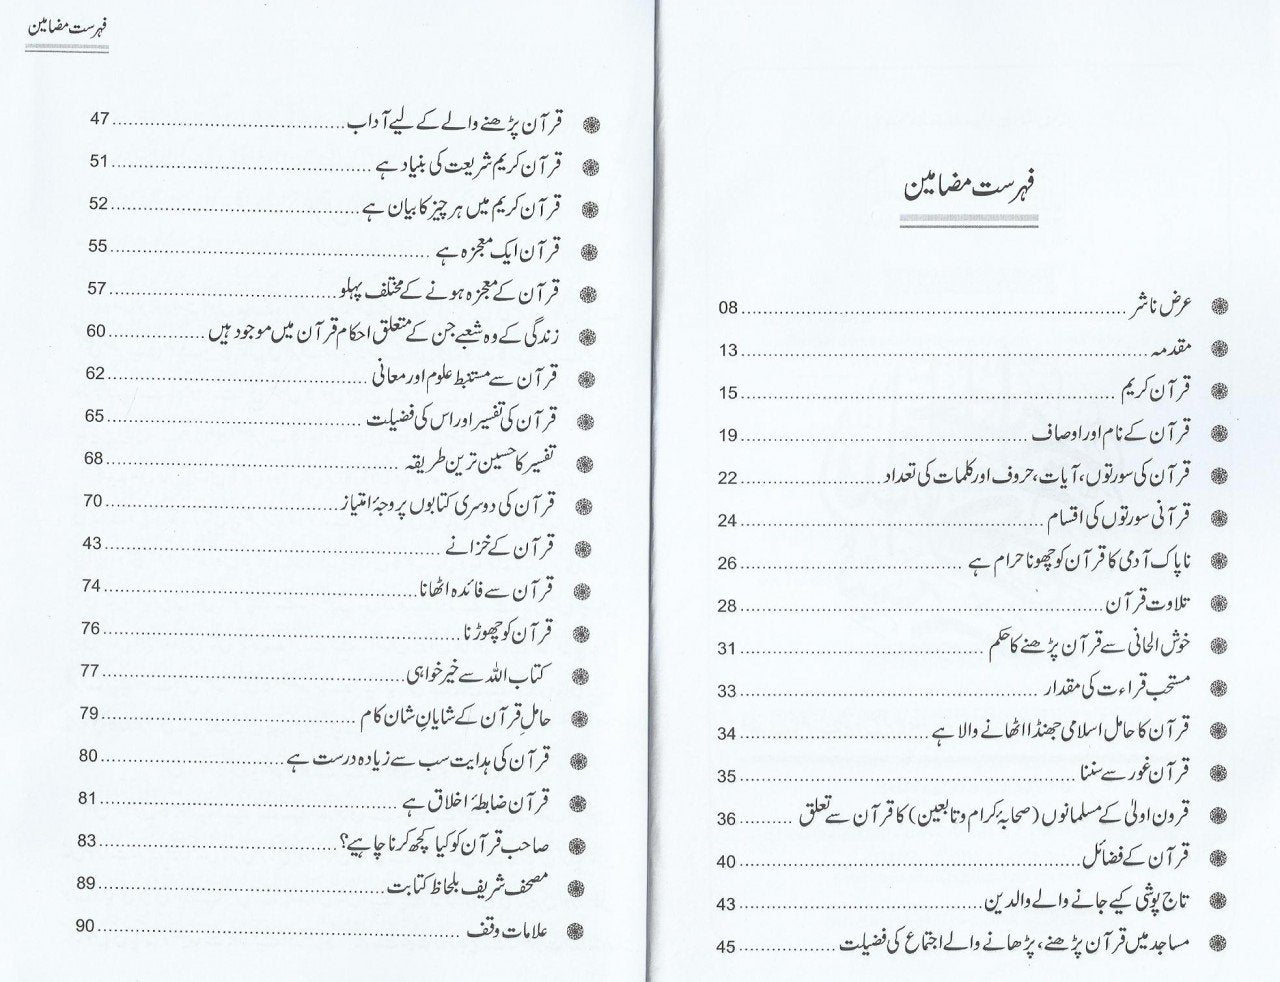 فہرست مضامین
عرض ناشر ........ 08
مقدمہ ........ 13
قرآن کریم ........ 15
قرآن کے نام اور اوصاف ........ 19
قرآن کی سورتوں، آیات، حروف اور کلمات کی تعداد ........ 22
قرآنی سورتوں کی اقسام ........ 24
ناپاک آدمی کا قرآن کو چھونا حرام ہے ........ 26
تلاوت قرآن ........ 28
خوش الحانی سے قرآن پڑھنے کا حکم ........ 31
مستحب قراءت کی مقدار ........ 33
قرآن کا حامل اسلامی جھنڈا اٹھانے والا ہے ........ 34
قرآن غور سے سننا ........ 35
قرون اولیٰ کے مسلمانوں (صحابۂ کرام و تابعین) کا قرآن سے تعلق ........ 36
قرآن کے فضائل ........ 40
تاج پوشی کیے جانے والے والدین ........ 43
مساجد میں قرآن پڑھنے، پڑھانے والے اجتماع کی فضیلت ........ 45
فہرست مضامین
قرآن پڑھنے والے کے لیے آداب ........ 47
قرآن کریم شریعت کی بنیاد ہے ........ 51
قرآن کریم میں ہر چیز کا بیان ہے ........ 52
قرآن ایک معجزہ ہے ........ 55
قرآن کے معجزہ ہونے کے مختلف پہلو ........ 57
زندگی کے وہ شعبے جن کے متعلق احکام قرآن میں موجود ہیں ........ 60
قرآن سے مستنبط علوم اور معانی ........ 62
قرآن کی تفسیر اور اس کی فضیلت ........ 65
تفسیر کا حسین ترین طریقہ ........ 68
قرآن کی دوسری کتابوں پر وجۂ امتیاز ........ 70
قرآن کے خزانے ........ 43
قرآن سے فائدہ اٹھانا ........ 74
قرآن کو چھوڑنا ........ 76
کتاب اللہ سے خیر خواہی ........ 77
حاملِ قرآن کے شایانِ شان کام ........ 79
قرآن کی ہدایت سب سے زیادہ درست ہے ........ 80
قرآن ضابطۂ اخلاق ہے ........ 81
صاحب قرآن کو کیا کچھ کرنا چاہیے؟ ........ 83
مصحف شریف بلحاظ کتابت ........ 89
علامات وقف ........ 90